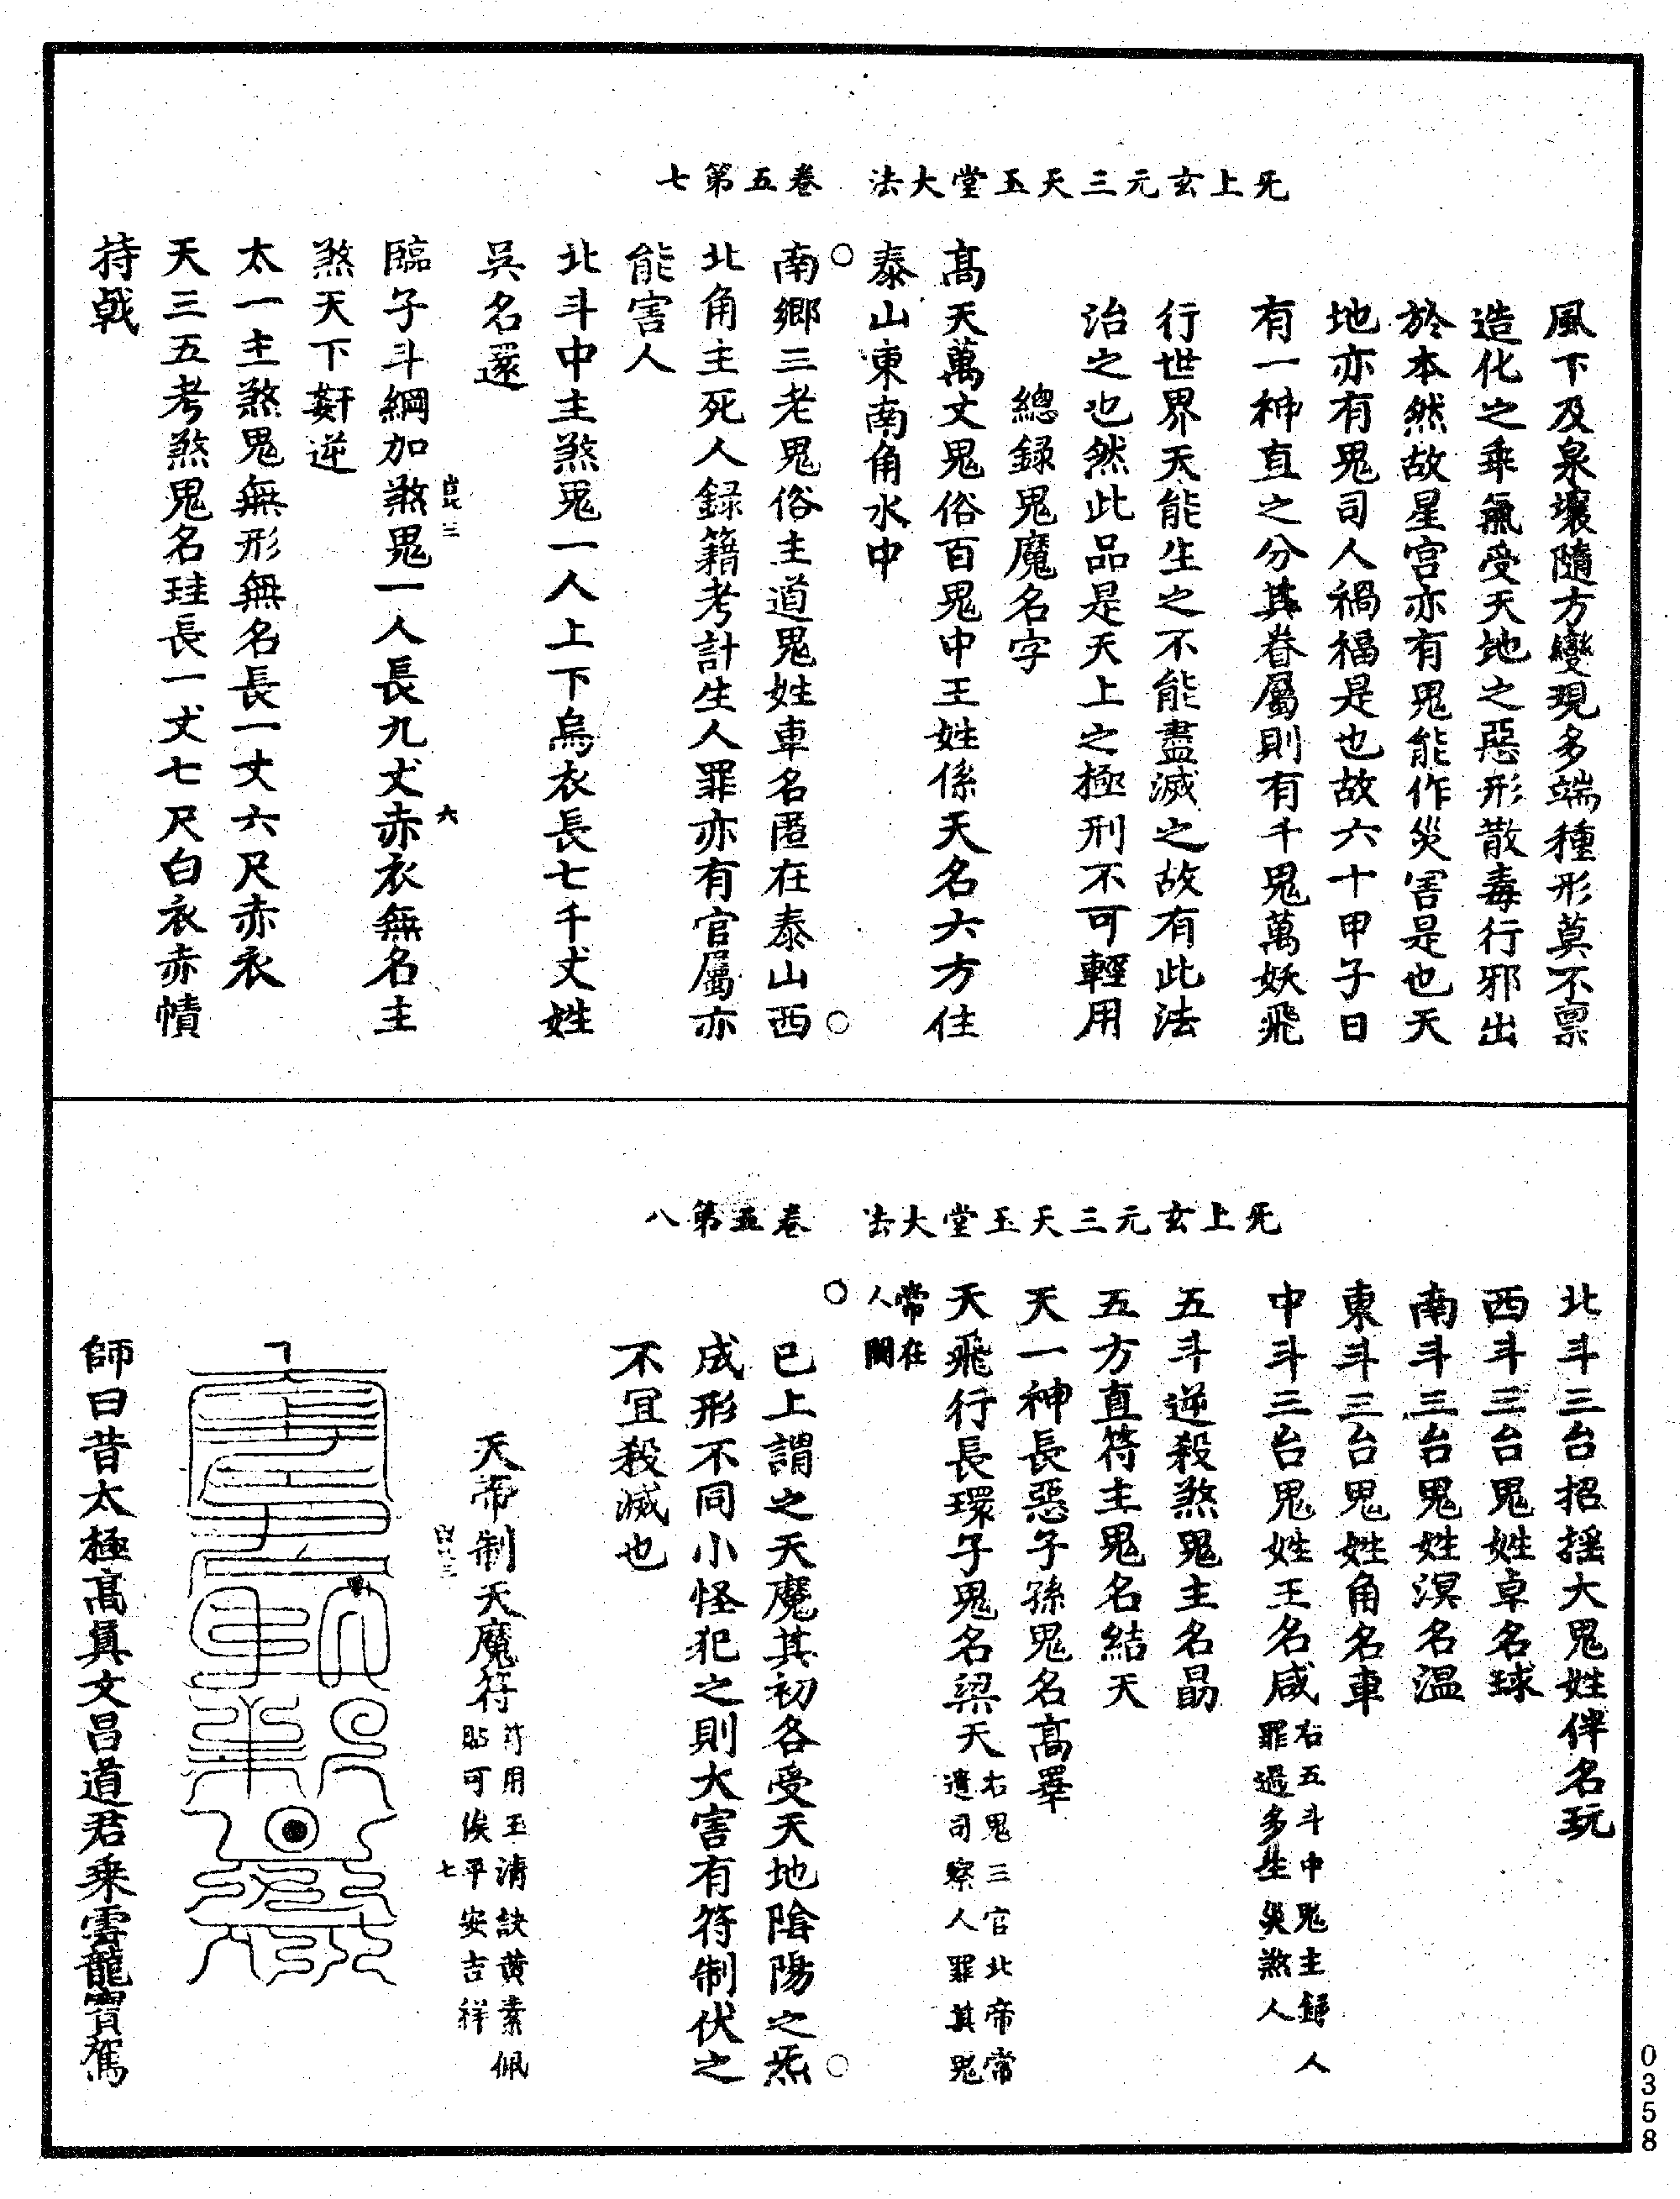 无上玄元三天玉堂大法　卷五第七
風下及泉壤隨方變現多端種形莫不禀
造化之乖氣受天地之惡形散毒行邪出
於本然故星宫亦有鬼能作災害是也天
地亦有鬼司人禍福是也故六十甲子日
有一神直之分其眷屬則有千鬼萬妖飛
行世界天能生之不能盡滅之故有此法
治之也然此品是天上之極刑不可輕用
總録鬼魔名字
髙天萬丈鬼俗百鬼中王姓係天名六方住
泰山東南角水中
○南鄉三老鬼俗主道鬼姓車名匿在泰山西○
北角主死人録籍考計生人罪亦有官屬亦
能害人
北斗中主煞鬼一人上下烏衣長七千丈姓
吳名還
臨子斗綱加煞鬼一人長九丈赤衣無名主
煞天下姧逆
太一主煞鬼無形無名長一丈六尺赤衣
天三五考煞鬼名珪長一丈七尺白衣赤幘
持戟
三
六
无上玄元三天玉堂大法　卷五第八
北斗三台招摇大鬼姓伴名玩
西斗三台鬼姓卓名球
南斗三台鬼姓溟名温
東斗三台鬼姓角名車
中斗三台鬼姓王名咸右五斗中鬼主録人
罪過多生災煞人
五斗逆殺煞鬼主名勗
五方直符主鬼名結天
天一神長惡子孫鬼名髙睪
天飛行長環子鬼名梁天右鬼三官北帝常
遣司察人罪其鬼
常在
人間
○已上謂之天魔其初各受天地隂陽之炁○
成形不同小怪犯之則大害有符制伏之
不宜殺滅也
天帝制天魔符符用玉清訣黄素佩
貼可俟平安吉祥
三
七
師曰昔太極髙眞文昌道君乗雲龍寳駕
0358